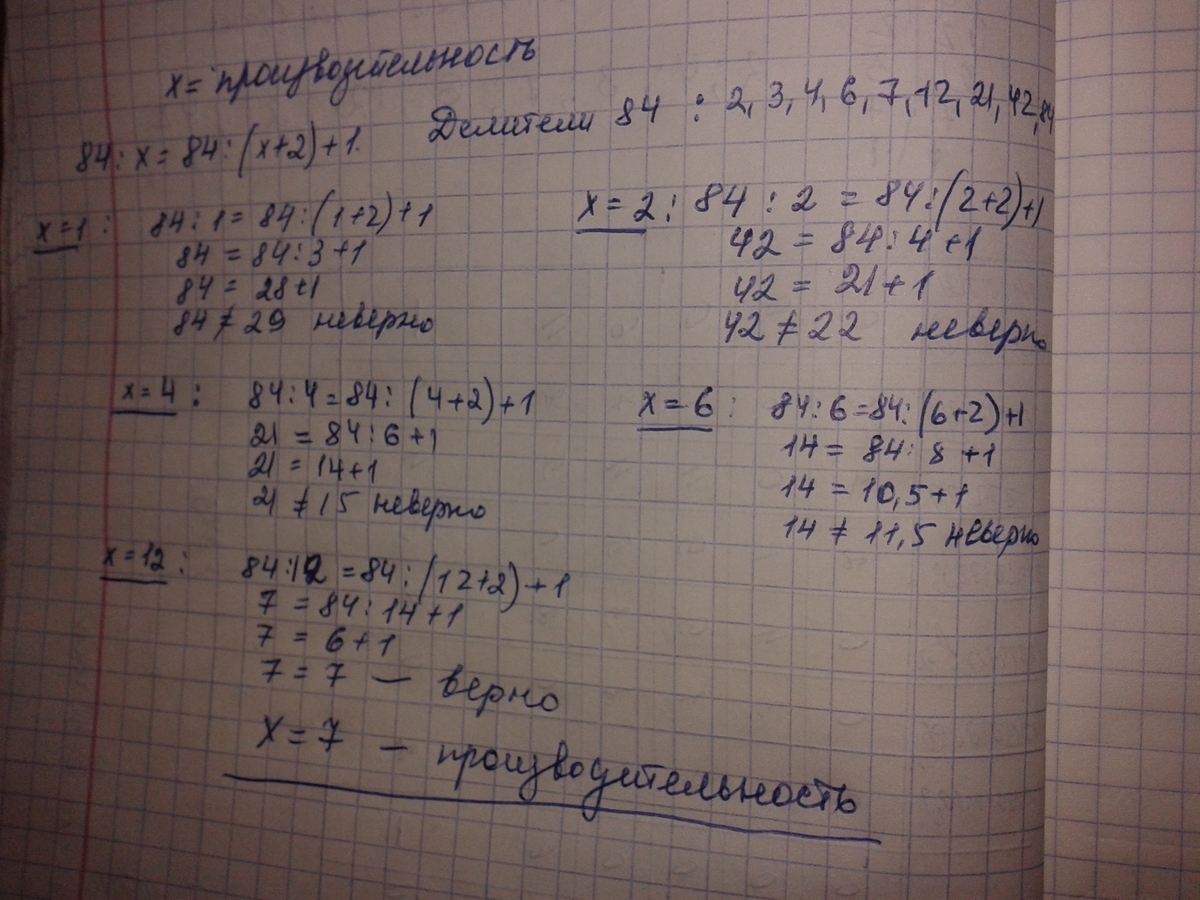 x = производительность
Делители 84 : 2, 3, 4, 6, 7, 12, 21, 42, 84
84 : x = 84 : (x+2) + 1.
x=1 : 84 : 1 = 84 : (1+2) + 1
84 = 84 : 3 + 1
84 = 28+1
84 ≠ 29 неверно
x = 2 : 84 : 2 = 84 : (2+2)+1
42 = 84 : 4 + 1
42 = 21 + 1
42 ≠ 22 неверно
x = 4 : 84 : 4 = 84 : (4+2) + 1
21 = 84 : 6 + 1
21 = 14+1
21 ≠ 15 неверно
x = 6 : 84 : 6 = 84 : (6+2)+1
14 = 84 : 8 + 1
14 = 10,5 + 1
14 ≠ 11,5 неверно
x=12 : 84 : 12 = 84 : (12+2) + 1
7 = 84 : 14 + 1
7 = 6 + 1
7 = 7 — верно
x = 7 — производительность